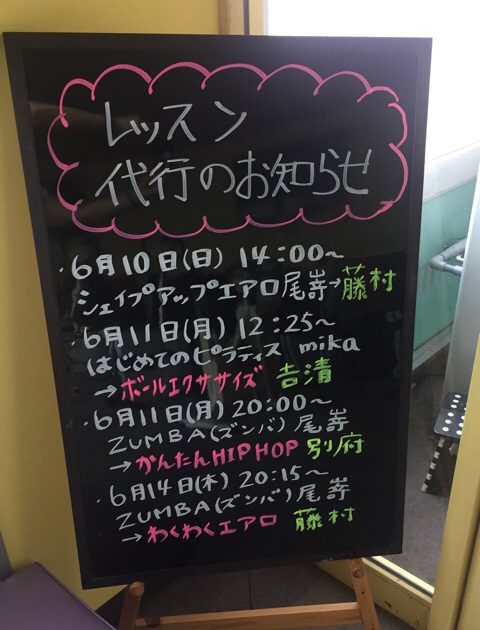 レッスン
代行のお知らせ
・6月10日(日) 14:00~
シェイプアップエアロ尾嵜→藤村
・6月11日(月) 12:25~
はじめてのピラティス mika
→ボールエクササイズ 吉清
・6月11日(月) 20:00~
ZUMBA(ズンバ) 尾嵜
→かんたんHIPHOP 別府
・6月14日(木) 20:15~
ZUMBA(ズンバ) 尾嵜
→わくわくエアロ 藤村